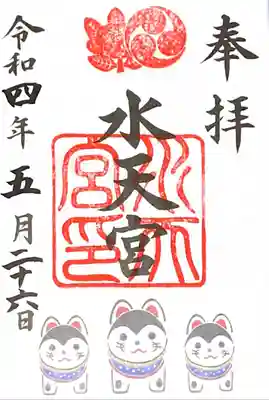 奉拝
水天宮
水天
宮印
令和四年五月二十六日